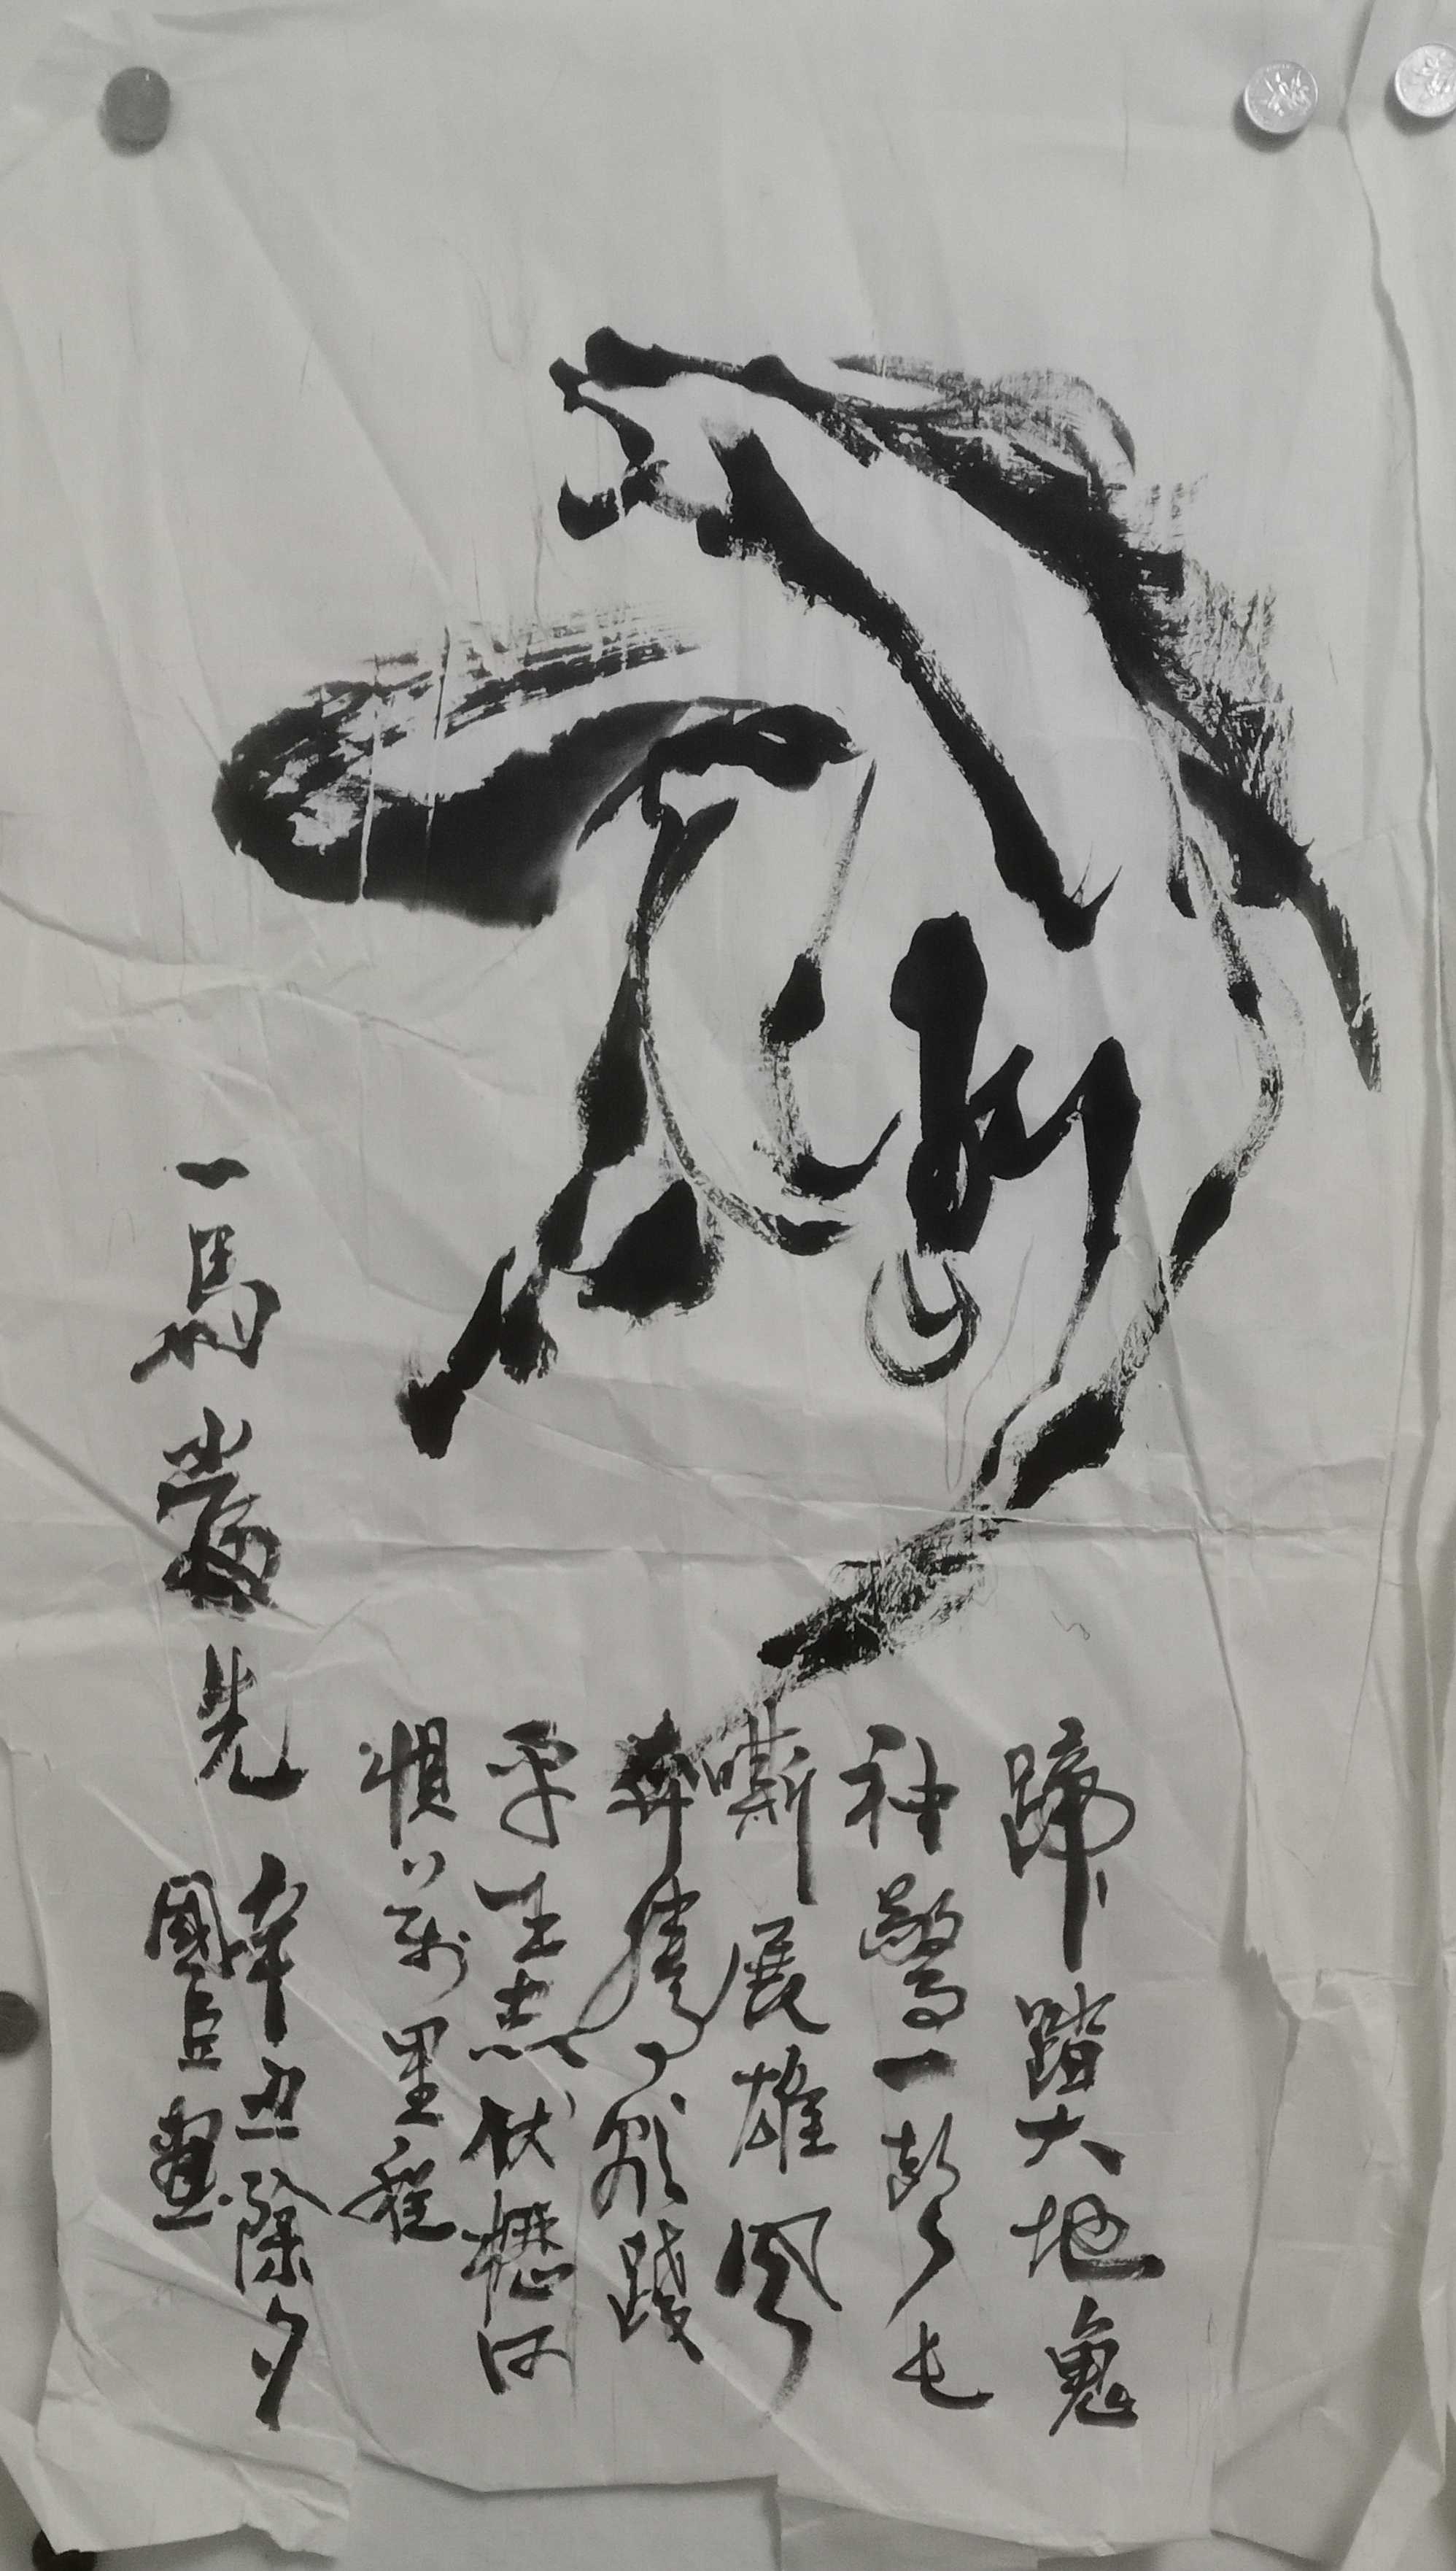 蹄踏大地鬼
神驚一聲長
嘶展雄風
奔騰
平生志伏櫪何
懼萬里程
一馬當先
辛丑除夕
國臣畫